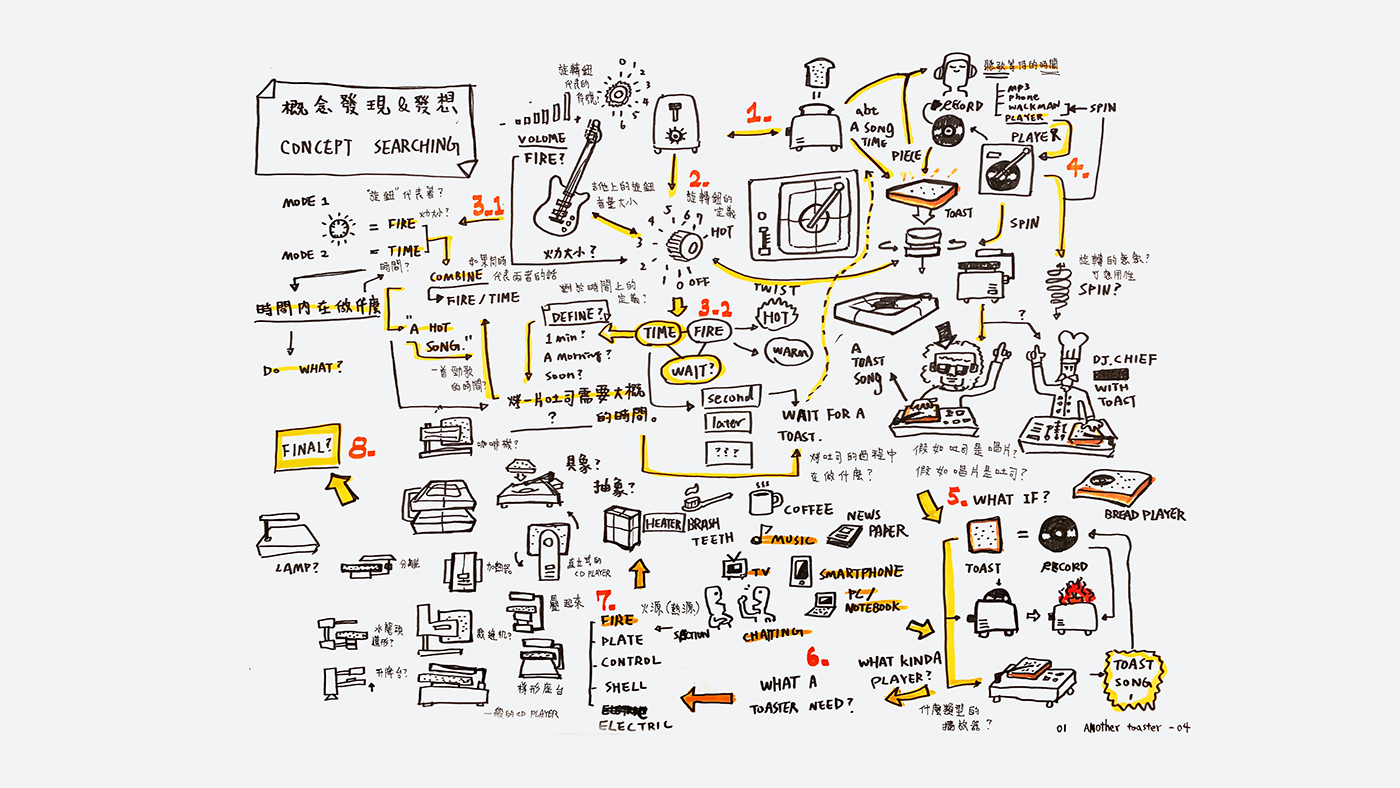 概念發現&發想
CONCEPT SEARCHING
旋轉鈕
代表的
VOLUME
FIRE?
火力大小?
吉他上的旋鈕
音量大小
0
1
2
3
4
5
6
1.
abt
A SONG
TIME
PIECE
RECORD
聽歌等待的時間
MP3
PHONE
WALKMAN
PLAYER
SPIN
PLAYER
4.
TOAST
SPIN
旋轉的意氣?
可應用性
SPIN?
?
2.
旋轉鈕的
定義
HOT
7
6
5
4
3
2
1
0 OFF
3.1
"旋鈕"代表著?
MODE 1
= FIRE
火力大?
MODE 2
= TIME
時間?
COMBINE
如果同時
代表兩者的話
FIRE/TIME
時間內在做什麼
DO WHAT?
"A HOT
SONG."
一首勁歌
的時間?
對於時間上的
定義?
DEFINE?
1 min?
A Morning?
Soon?
3.2
TIME
FIRE
WAIT?
TWIST
HOT
WARM
烤一片吐司需要大概
?
的時間。
second
later
???
WAIT FOR A
TOAST.
烤吐司的過程中
在做什麼?
A
TOAST
SONG
DJ.CHIEF
WITH
TOAST
假如吐司是唱片?
假如唱片是吐司?
5. WHAT IF?
BREAD PLAYER
TOAST
=
RECORD
TOAST
SONG
!
WHAT KINDA
PLAYER?
什麼類型的
播放器?
6.
WHAT A
TOASTER NEED?
7.
FIRE
火源(熱源)
PLATE
SECTION
CONTROL
SHELL
ELECTRIC
HEATER
BRASH
TEETH
COFFEE
MUSIC
NEWS
PAPER
TV
SMARTPHONE
PC/
NOTEBOOK
CHATTING
具象?
抽象?
8.
FINAL?
咖啡機?
LAMP?
分離
加熱器
直立式的
CD PLAYER
疊起來
水龍頭
造形?
裁縫机?
升降台?
梯形座台
一般的CD PLAYER
01 Another toaster -04